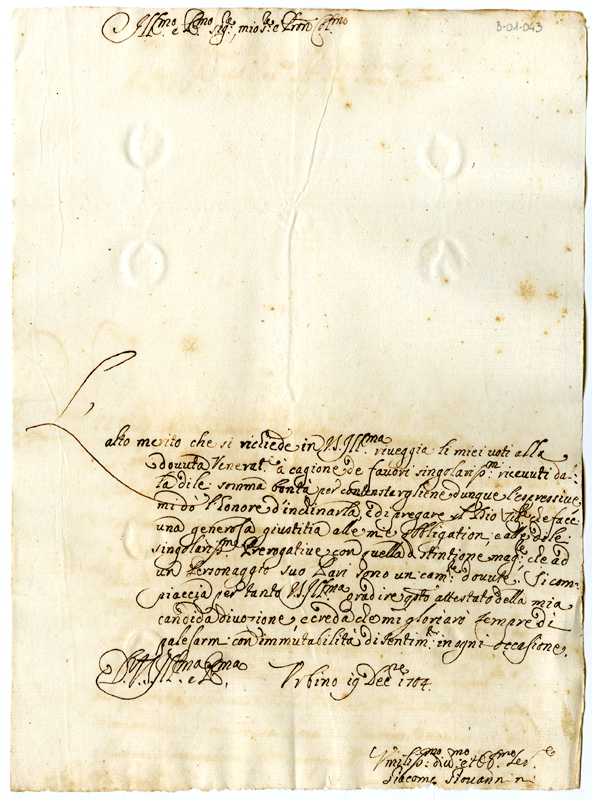 Ill.mo e R.mo Sig.re, mio Sig.re e Pron Col.mo
3-01-043
L'alto merito che si richiede in V.S. Ill.ma riveggia li miei voti alla
dovuta Venerat.e à cagione de favori singolariss.mi ricevuti dal-
la di le somma bontà per contenstargliene dunque l'espressive
mi dò l'honore d'inclinarla, e di pregare
una generosa giustitia alle mie obbligationi, e alle di le
singolariss.me Prerogative con quella distintione che ad
un Personaggio suo Pari sono dovute. Si com-
piaccia per tanto V.S. Ill.ma gradire q.sto attestato della mia
candida divozione, e creda che mi gloriarò sempre di
palesarmi con immutabilità di sentim.ti in ogni occasione.
D. V.S. Ill.ma e R.ma
Urbino 19 Dec.re 1704.
Umiliss.mo div.mo et Obl.mo
Giacomo Giovannini